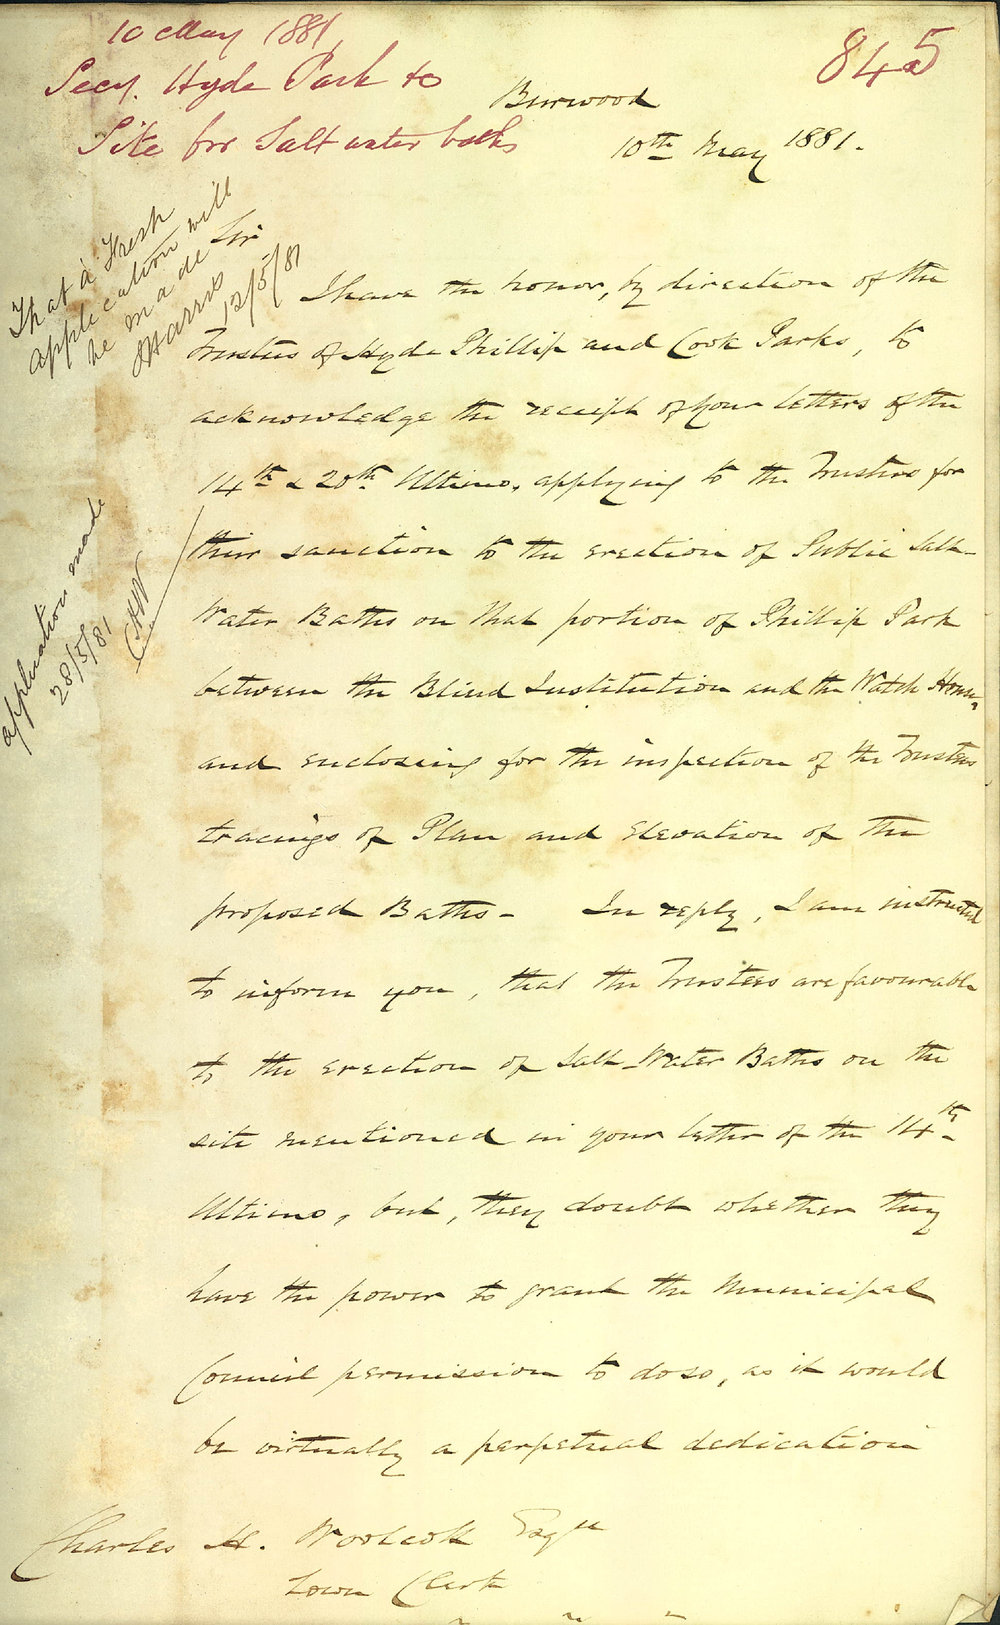 10 May 1881
Secy. Hyde Park to
Site for Salt water baths
845
Burwood
10th May 1881.
That a Fresh
application will
be made
J Harris
12/5/81
application made
28/5/81
CHW
Sir
I have the honor, by direction of the
Trustees of Hyde Phillip and Cook Parks, to
acknowledge the receipt of your letters of the
14th & 20th Ultimo, applying to the Trustees for
their sanction to the erection of Public Salt-
Water Baths on that portion of Phillip Park
between the Blind Institution and the Watch House,
and enclosing for the inspection of the Trustees
tracings of Plan and Elevation of the
proposed Baths - In reply, I am instructed
to inform you, that the Trustees are favourable
to the erection of Salt-Water Baths on the
site mentioned in your letter of the 14th
Ultimo, but, they doubt whether they
have the power to grant the Municipal
Council permission to do so, as it would
be virtually a perpetual dedication
Charles H. Woolcott Esqre
Town Clerk